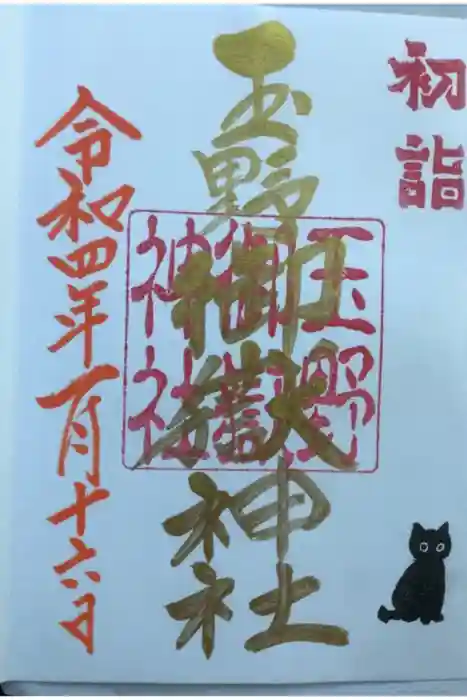 初詣
玉野御嶽神社
玉野
御嶽
神社
令和四年一月十六日